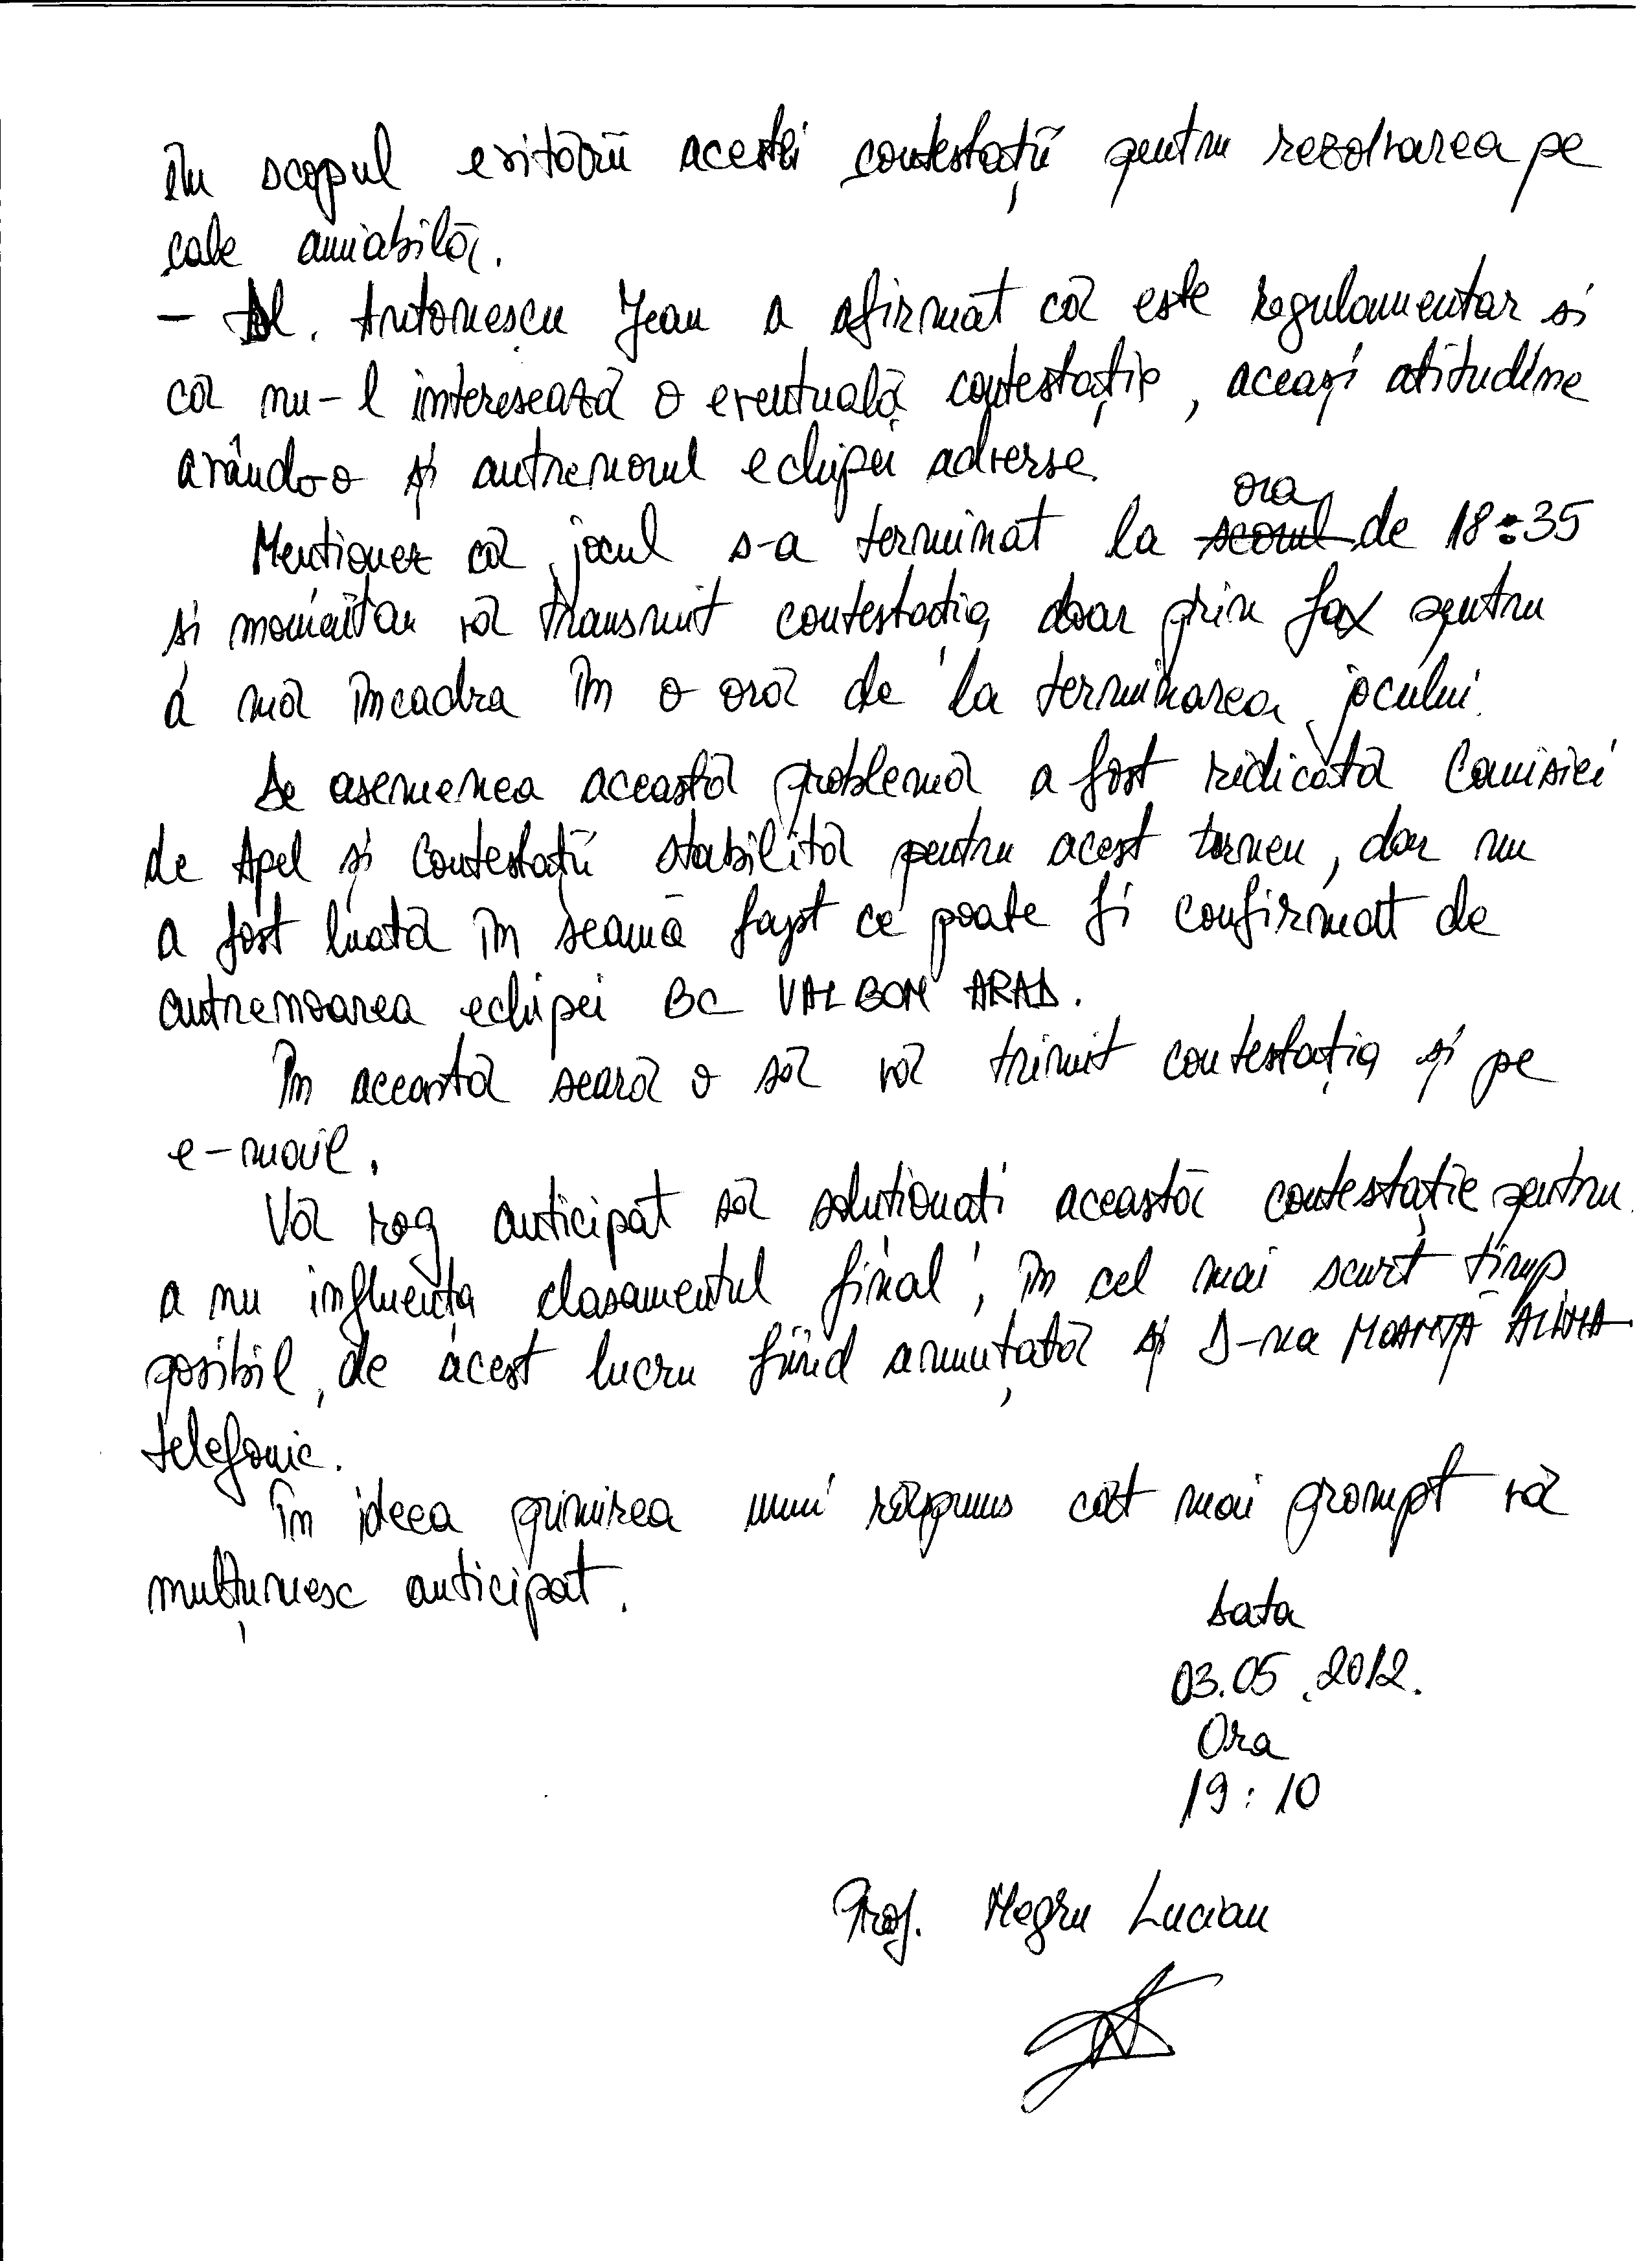 în scopul evitării acestei contestații pentru rezolvarea pe
cale amiabilă.
- Dl. Antonescu Jean a afirmat că este regulamentar si
că nu-l interesează o eventuală contestație, aceași atitudine
având-o și antrenorul echipei adverse.
Mentionez că jocul s-a terminat la ora de 18:35
si momentan vă transmit contestatia doar prin fax pentru
a mă încadra în o oră de la terminarea jocului.
De asemenea această problemă a fost ridicată Comisiei
de Apel și Contestații stabilită pentru acest turneu, dar nu
a fost luată în seamă fapt ce poate fi confirmat de
antrenoarea echipei BC VALBON ARAD.
În această seară o să vă trimit contestația și pe
e-mail.
Vă rog anticipat să solutionati această contestație pentru
a nu influența clasamentul final, în cel mai scurt timp
posibil, de acest lucru fiind anunțată și D-na MOANȚĂ ALINA
telefonic.
În ideea primirea unui răspuns cât mai prompt vă
mulțumesc anticipat.
Data
03.05.2012.
Ora
19:10
Prof. Negru Lucian